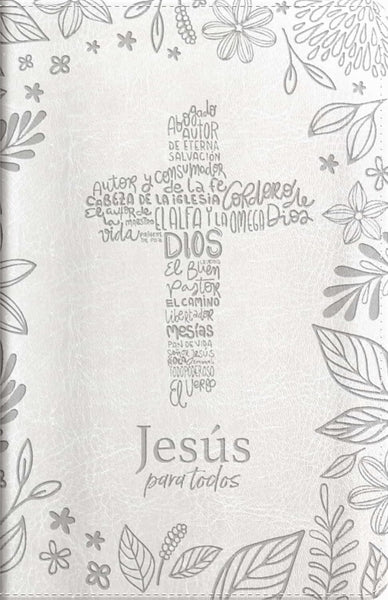 Abogado
AUTOR
DE ETERNA
SALVACIÓN
Autor y consumador
de la fe
CABEZA DE LA IGLESIA
Cordero de
Dios
El autor de
la vida
MAESTRO
PRÍNCIPE
DE PAZ
EL ALFA Y LA OMEGA
DIOS
LA VERDAD
El Buen
Pastor
EL CAMINO
Libertador
MESÍAS
PAN DE VIDA
SEÑOR JESÚS
ROCA
TODOPODEROSO
El Verbo
Jesús
para todos